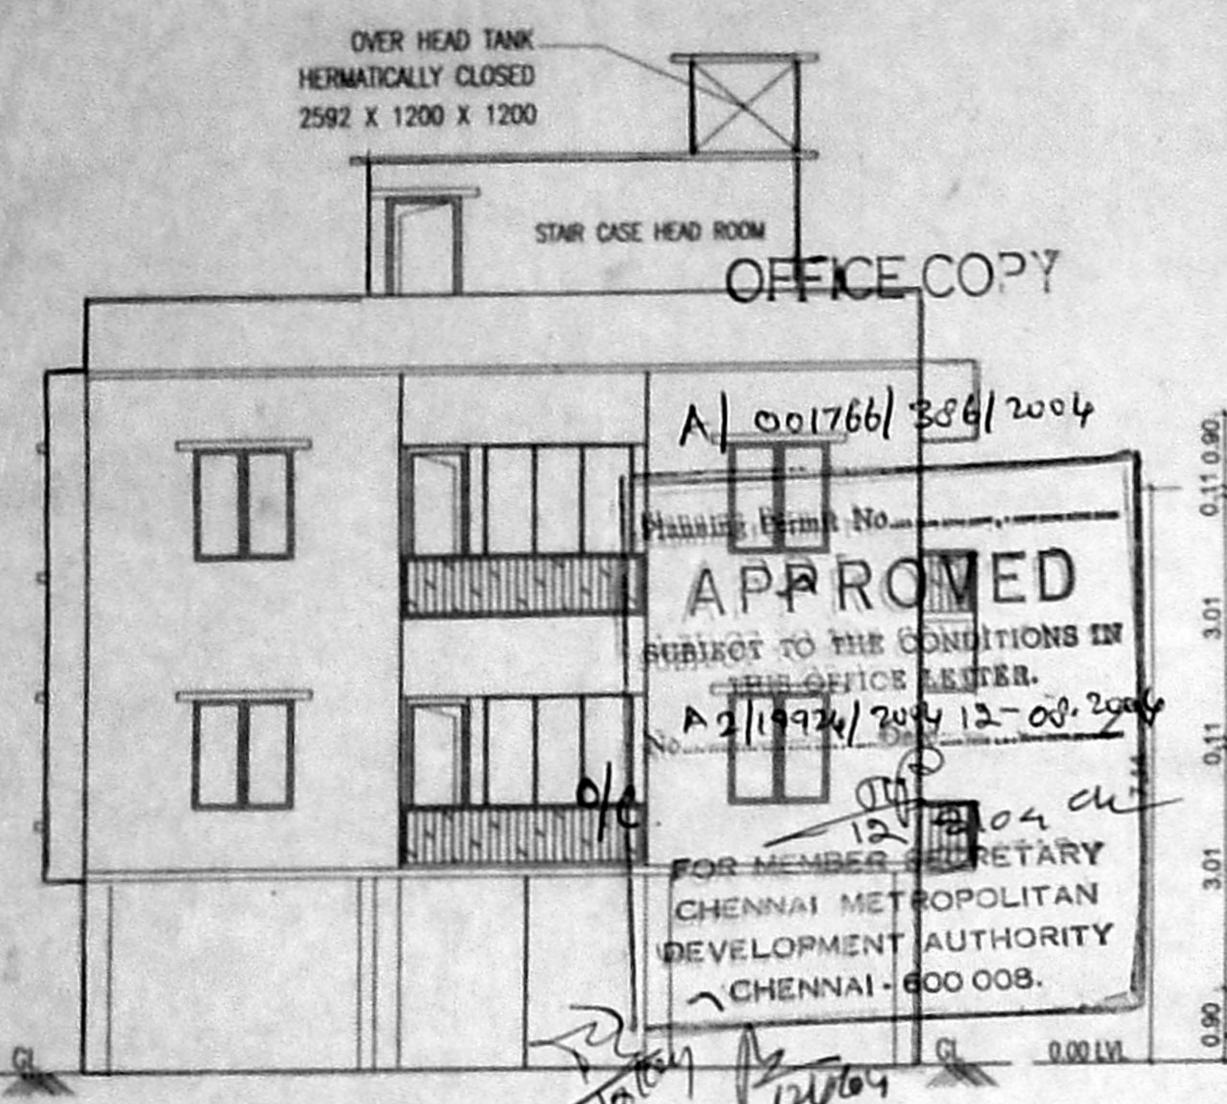 OVER HEAD TANK
HERMATICALLY CLOSED
2592 X 1200 X 1200
STAIR CASE HEAD ROOM
OFFICE COPY
A/ 001766/ 386/2004
0.11 0.90
Planning Permit No.
APPROVED
SUBJECT TO THE CONDITIONS IN
THIS OFFICE LETTER.
3.01
A2/19924/2004 12-08-2004
No.
0.11
O/C
12 8 04
FOR MEMBER SECRETARY
CHENNAI METROPOLITAN
DEVELOPMENT AUTHORITY
CHENNAI - 600 008.
3.01
0.90
GL
GL
0.00 LVL